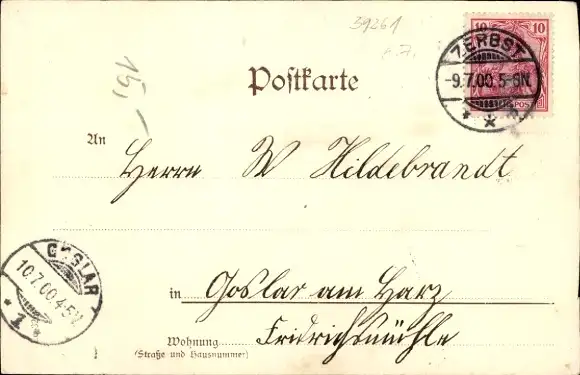 39261
10 10
ZERBST
-9.7.00.5-6N.
Postkarte
15,
An
Herrn W Hildebrandt
GOSLAR
10.7.00.4-5N.
* 1 *
in Goslar am Harz
Wohnung Fridrichsmühle
(Straße und Hausnummer)